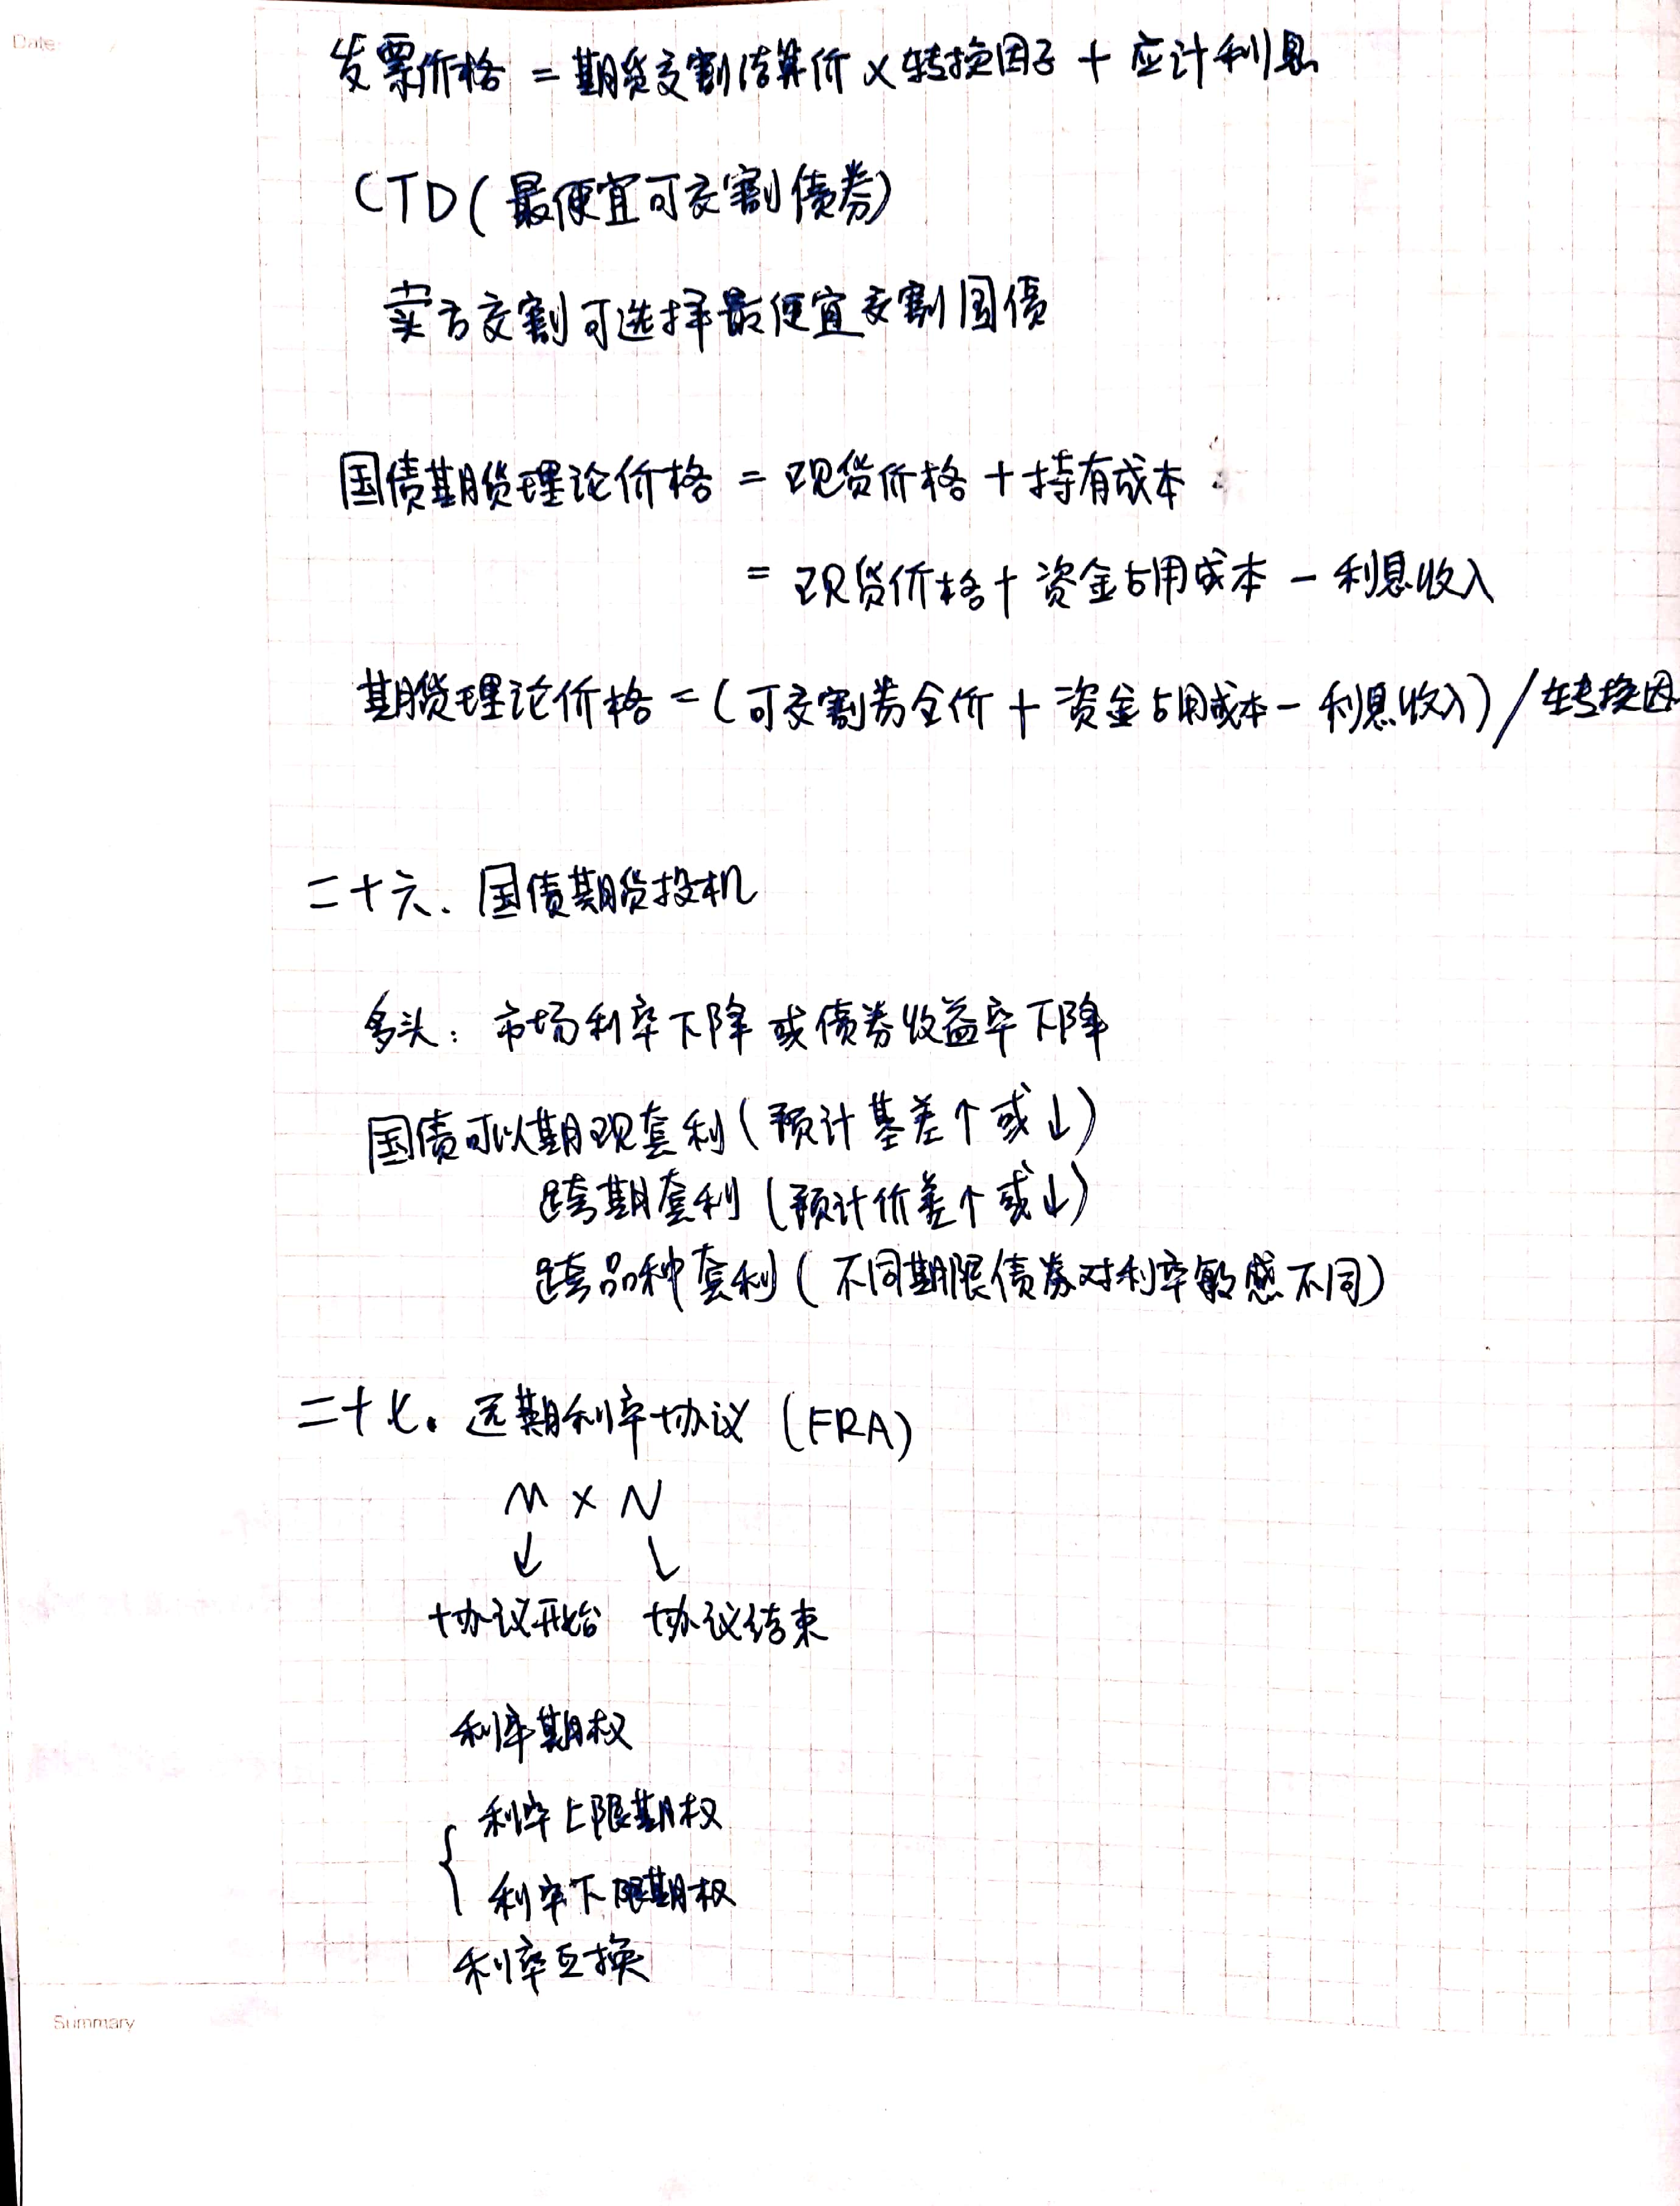 Date
发票价格 = 期货交割结算价 × 转换因子 + 应计利息
CTD(最便宜可交割债券)
卖方交割可选择最便宜交割国债
国债期货理论价格 = 现货价格 + 持有成本
= 现货价格 + 资金占用成本 - 利息收入
期货理论价格 = (可交割券全价 + 资金占用成本 - 利息收入) / 转换因
二十六、国债期货投机
多头: 市场利率下降或债券收益率下降
国债可以期现套利(预计基差↑或↓)
跨期套利(预计价差↑或↓)
跨品种套利(不同期限债券对利率敏感不同)
二十七. 远期利率协议 (FRA)
M × N
↓ ↓
协议开始 协议结束
利率期权
{ 利率上限期权
利率下限期权
利率互换
Summary